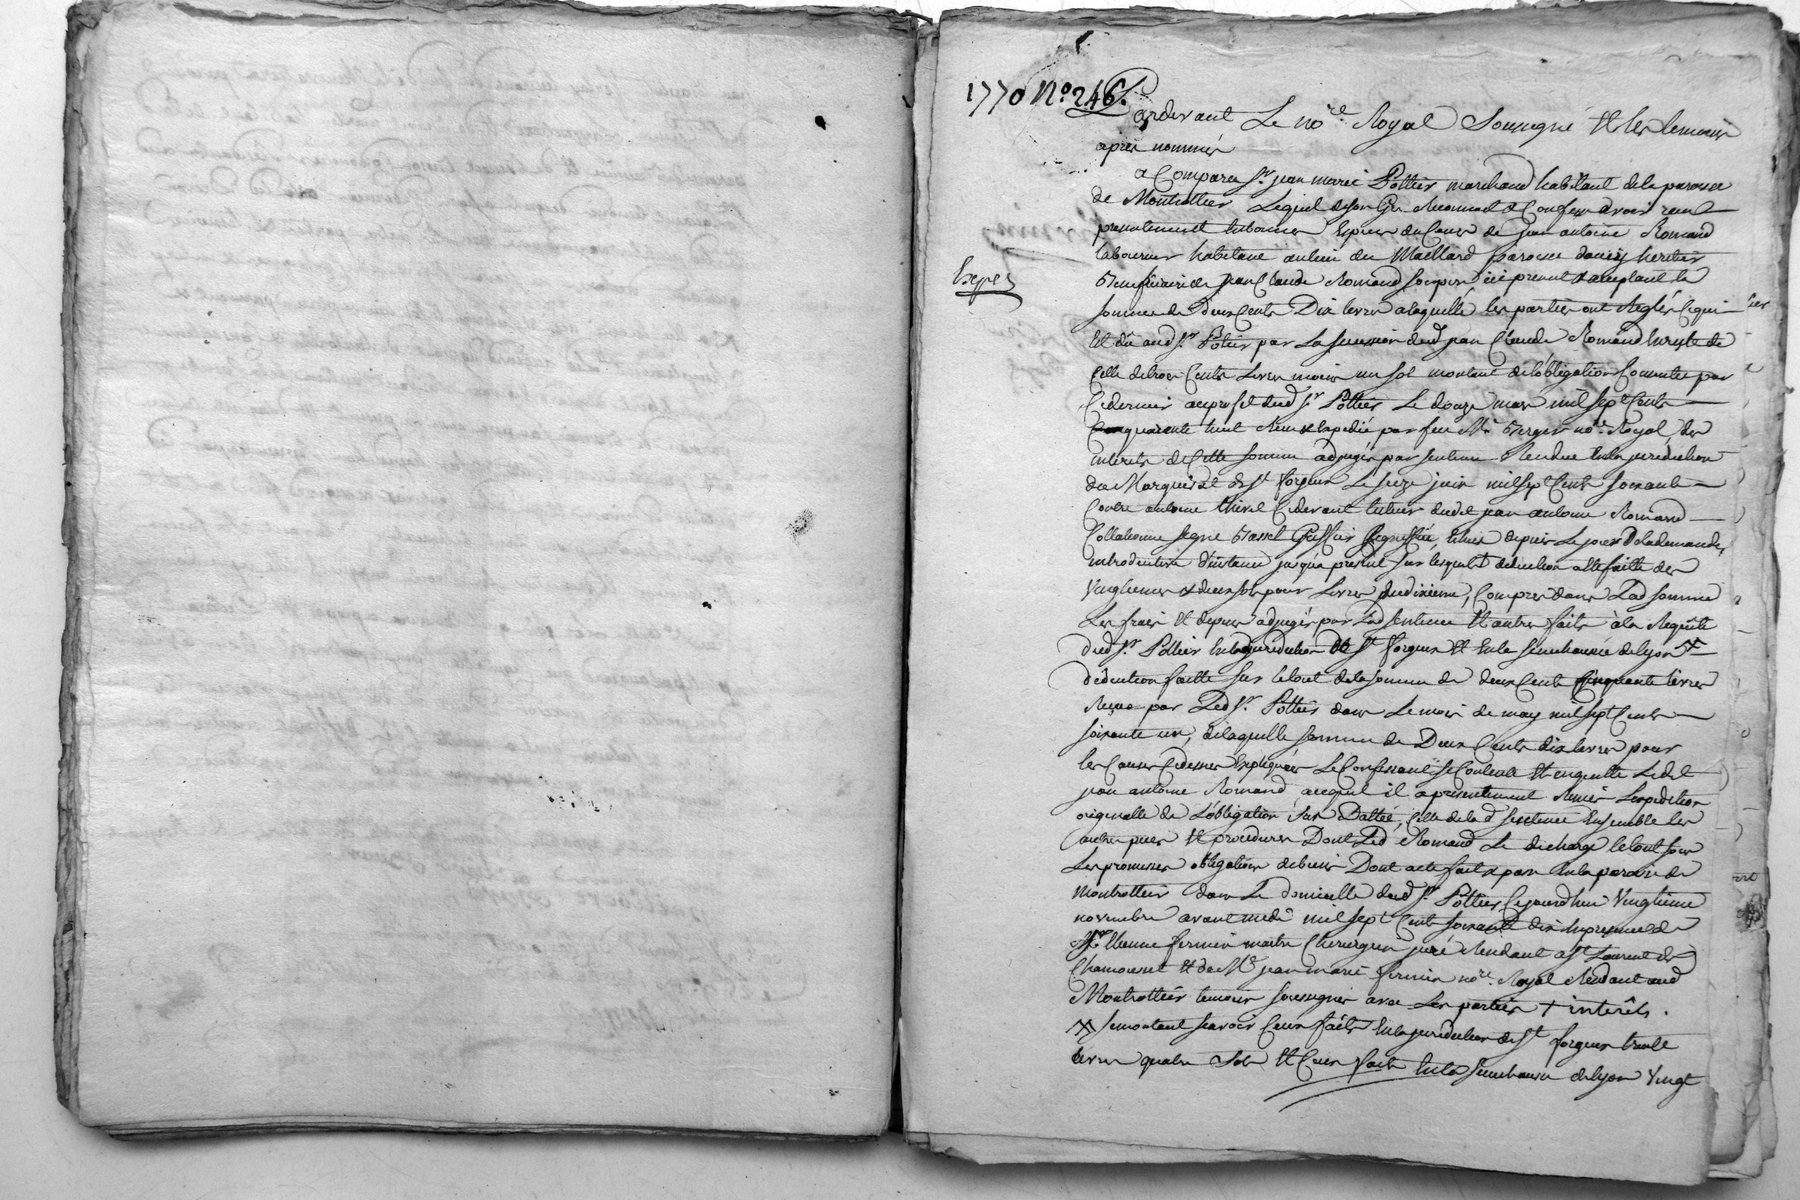 1770 No. 246.
Pardevant Le nore. Royal Soussigné et les temoins
après nommés
a Comparu Sr. jean marie Pottier marchand habitant de la paroisse
de Montrottier Lequel de son gré Reconnoit et Confesse avoir reçut
presentement en bonnes Especes du Cours de jean antoine Romand
laboureur habitant au lieu du Maillard paroisse heritier
Beneficiaire de jean Claude Romand son pere icy present et acceptant la
somme de deux Cents Dix livres a laquelle les parties ont Reglés Ce qui
Est dû aud Sr. Pottier par La succession dud jean Claude Romand En reste de
Celle de trois Cents Livres moins un sol montant de l'obligation Consentie par
Ce dernier au profit dud Sr. Pottier Le douze mars mil sept Cents
Cinquante huit Reçue et Expediée par feu Me. Berger nore. Royal, Les
interets de Cette somme adjugés par sentence Rendue En la jurisdiction
du Marquisat de St. forgeux Le seize juin mil sept Cents soixante
Contre antoine Cidevant tuteur dudit jean antoine Romand
Collationné signé Greffier, Courus depuis Le jour De la demande
introductive D'instance jusqu'a present sur lesquels deduction a ete faitte des
Vingtiemes et deux sols pour Livres du dixieme, Compris dans Lad somme
Les frais et depens adjugés par Lad sentence et autres faits à la Requête
dud Sr. Pottier En la jurisdiction de St. forgeux et En la senechaussée de Lyon #
deduction faitte sur le tout de la somme de deux Cents Cinquante livres
Reçue par Led Sr. Pottier dans Le mois de may mil sept Cents
soixante un, de laquelle somme de Deux Cents dix livres pour
les Causes Cidessus Expliquées Le Confessant se Contente et en quitte Ledit
jean antoine Romand auquel il a presentement Remis L'expedition
originalle de L'obligation sus Dattée, Celle de lad sentence Ensemble les
autres pieces et procedures Dont Led Romand Le decharge le tout sous
Les promesses obligations de biens Dont acte fait et passé En la paroisse de
Montrottier dans Le domicille dud Sr. Pottier Cejourd'hui Vingtieme
novembre avant midi mil sept Cents soixante dix En presence de
Sr. Etienne fermin maitre Chirurgien juré Residant a St. Laurent de
Chamousset et de Me. jean marie fermin nore. Royal Residant aud
Montrottier temoins soussignés avec Les parties + interêts.
# se montant scavoir Ceux faits En la jurisdiction de St. forgeux trente
livres quatre sols et Ceux faits En la senechaussée de Lyon Vingt